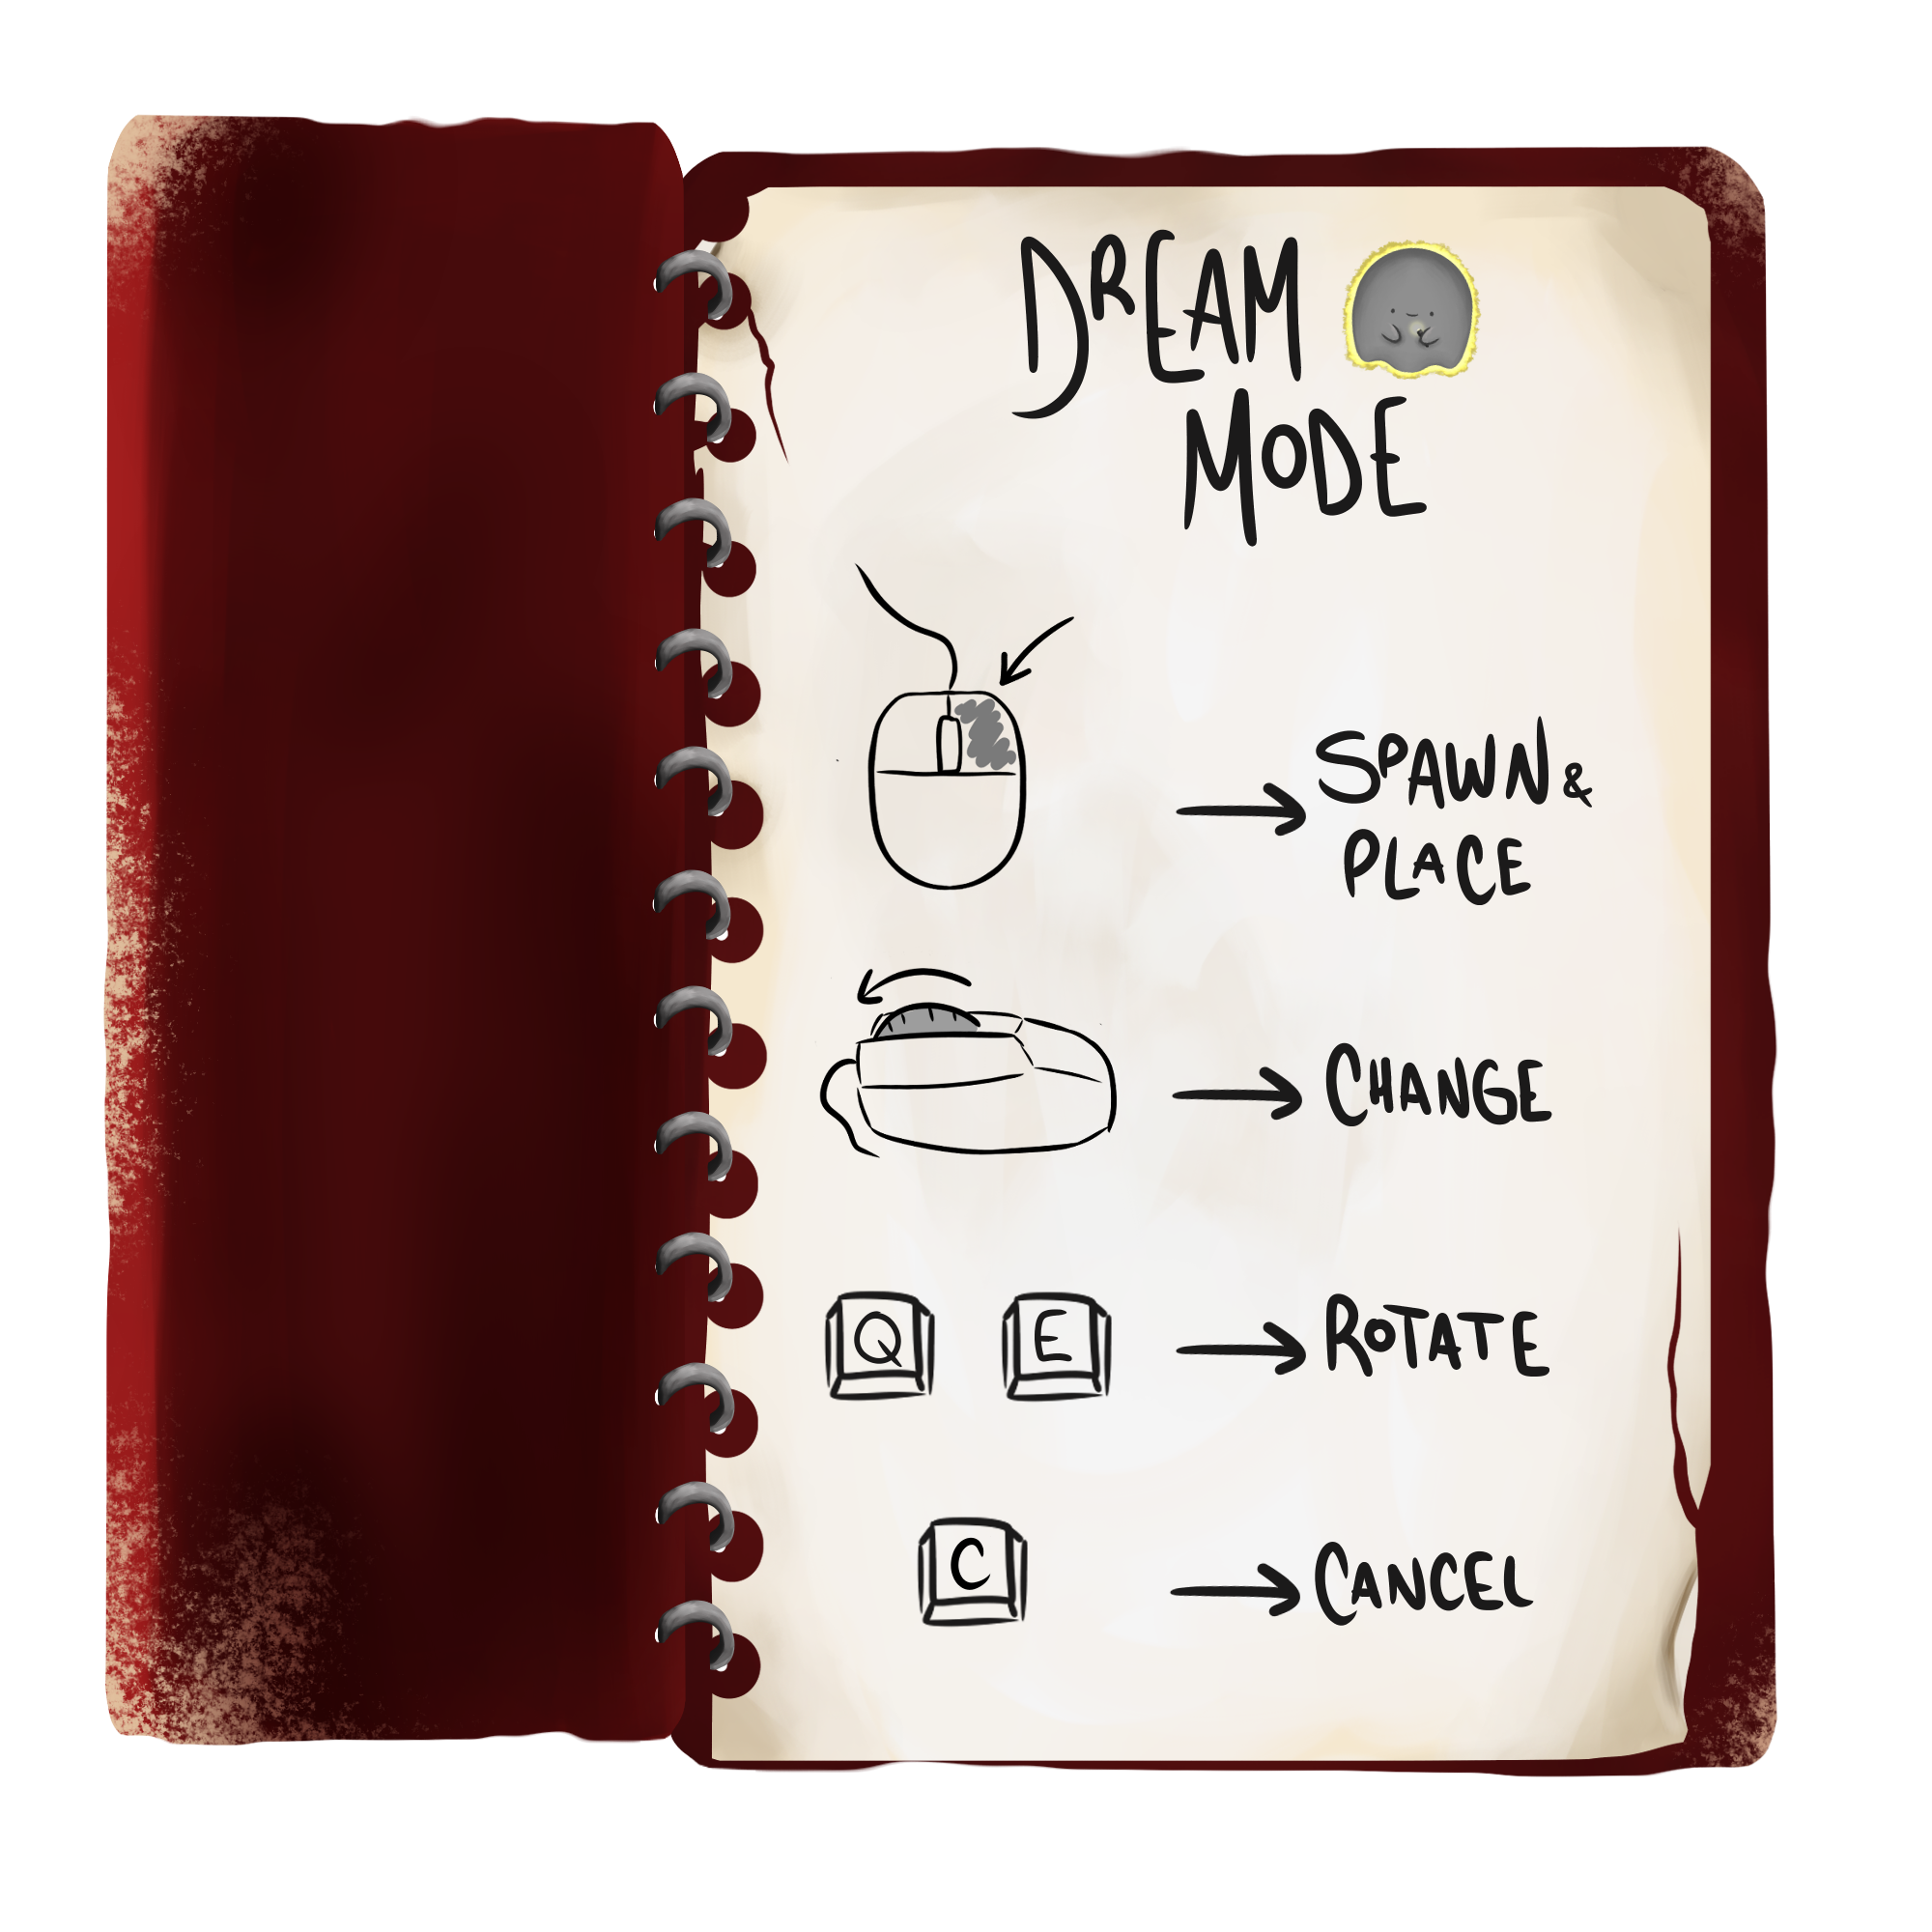 DREAM
MODE
SPAWN &
PLACE
CHANGE
Q E ROTATE
C CANCEL